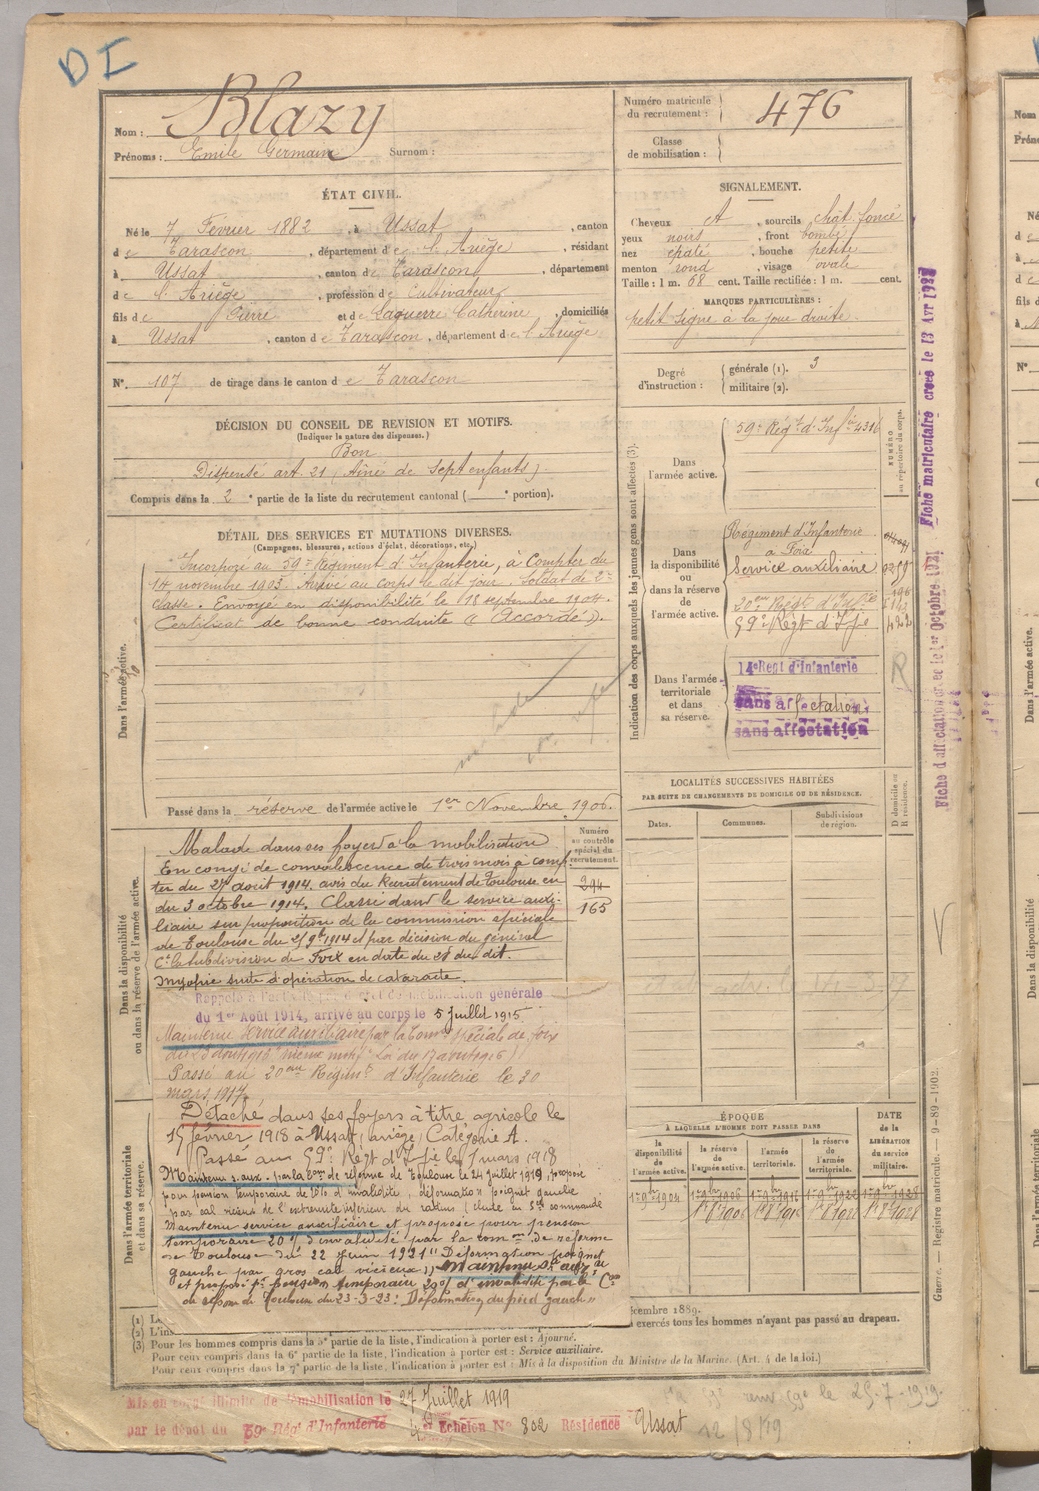 DI
Nom : Blazy
Prénoms : Emile Germain Surnom :
Numéro matricule du recrutement : 476
Classe de mobilisation :
ÉTAT CIVIL.
Né le 7 Février 1882, à Ussat, canton
de Tarascon, département de l'Ariège, résidant
à Ussat, canton de Tarascon, département
de l'Ariège, profession de Cultivateur
fils de Pierre et de Laguerre Catherine, domiciliés
à Ussat, canton de Tarascon, département de l'Ariège
N° 107 de tirage dans le canton de Tarascon
SIGNALEMENT.
Cheveux et, sourcils chât. foncé
yeux noirs, front bombé
nez épaté, bouche petite
menton rond, visage ovale
Taille : 1 m. 68 cent. Taille rectifiée : 1 m. cent.
MARQUES PARTICULIÈRES :
petit signe à la joue droite.
Degré d'instruction : générale (1). 3
militaire (2).
DÉCISION DU CONSEIL DE REVISION ET MOTIFS.
(Indiquer la nature des dispenses.)
Bon
Dispensé art. 21 (Aîné de sept enfants).
Compris dans la 2e partie de la liste du recrutement cantonal ( e portion).
DÉTAIL DES SERVICES ET MUTATIONS DIVERSES.
(Campagnes, blessures, actions d'éclat, décorations, etc.)
Dans l'armée active.
Incorporé au 59e Régiment d'Infanterie, à Compter du
14 novembre 1903. Arrivé au corps le dit jour. Soldat de 2e
classe. Envoyé en disponibilité le 18 septembre 1904.
Certificat de bonne conduite « Accordé ».
Passé dans la réserve de l'armée active le 1er Novembre 1906.
Indication des corps auxquels les jeunes gens sont affectés (3).
NUMÉRO au répertoire du corps.
Dans l'armée active.
59e Régt d'Infie 4316
Dans la disponibilité ou dans la réserve de l'armée active.
Régiment d'Infanterie
à Foix
Service auxiliaire
20eme Régt d'Infie
59e Régt d'Ifie
Dans l'armée territoriale et dans sa réserve.
14e Regt d'Infanterie
sans affectation
sans affectation
R
Fiche matriculaire créée le 13 Avr 1928
Fiche d'affectation créée le 1er Octobre 1921
LOCALITÉS SUCCESSIVES HABITÉES
PAR SUITE DE CHANGEMENTS DE DOMICILE OU DE RÉSIDENCE.
Dates.
Communes.
Subdivisions de région.
D domicile ou R résidence.
Dans la disponibilité ou dans la réserve de l'armée active.
Numéro au contrôle spécial du recrutement.
294
165
Malade dans ses foyers à la mobilisation
En congé de convalescence de trois mois à comp-
ter du 27 août 1914. avis du Recrutement de Toulouse en
du 3 octobre 1914. Classé dans le service auxi-
liaire sur proposition de la commission spéciale
de Toulouse du 2 9bre 1914 et par décision du général
Ct la subdivision de Foix en date du 28 du dit.
myopie suite d'opération de cataracte.
Rappelé à l'activité par décret de mobilisation générale
du 1er Août 1914, arrivé au corps le 5 Juillet 1915
Maintenu service auxiliaire par la Comon spéciale de Foix
du 23 août 1916 même motif (Loi du 17 août 1915)
Passé au 20eme Régimt d'Infanterie le 30
mars 1917.
Dans l'armée territoriale et dans sa réserve.
Détaché dans ses foyers à titre agricole le
15 février 1918 à Ussat (ariège) Catégorie A.
Passé au 59e Régt d'Ifie le 1 mars 1918
Maintenu s. aux. par la Com de réforme de Toulouse le 24 juillet 1919, propose
pour pension temporaire de 10% d'invalidité, déformation poignet gauche
par cal vicieux de l'extrémité inférieure du radius (chute en service commandé
Maintenu service auxiliaire et proposé pour pension
temporaire 20% d'invalidité par la comon de réforme
de Toulouse du 22 Juin 1921 "Déformation poignet
gauche par gros cal vicieux" Maintenu S. aux
et proposé pr pension temporaire 20% d'invalidité par la Con
de réforme de Toulouse du 23-3-23: Déformation du pied gauche
ÉPOQUE
À LAQUELLE L'HOMME DOIT PASSER DANS
la disponibilité de l'armée active.
la réserve de l'armée active.
l'armée territoriale.
la réserve de l'armée territoriale.
DATE de la LIBÉRATION du service militaire.
Guerre. — Registre matricule. — 9-89-1902.
décembre 1889.
à exercés tous les hommes n'ayant pas passé au drapeau.
(3) Pour les hommes compris dans la 5e partie de la liste, l'indication à porter est : Ajourné.
Pour ceux compris dans la 6e partie de la liste, l'indication à porter est : Service auxiliaire.
Pour ceux compris dans la 7e partie de la liste, l'indication à porter est : Mis à la disposition du Ministre de la Marine. (Art. 4 de la loi.)
Mis en congé illimité de démobilisation le 27 Juillet 1919
par le dépôt du 59e Régt d'Infanterie 4e Echelon N° 802 Résidence Ussat
12/8/19